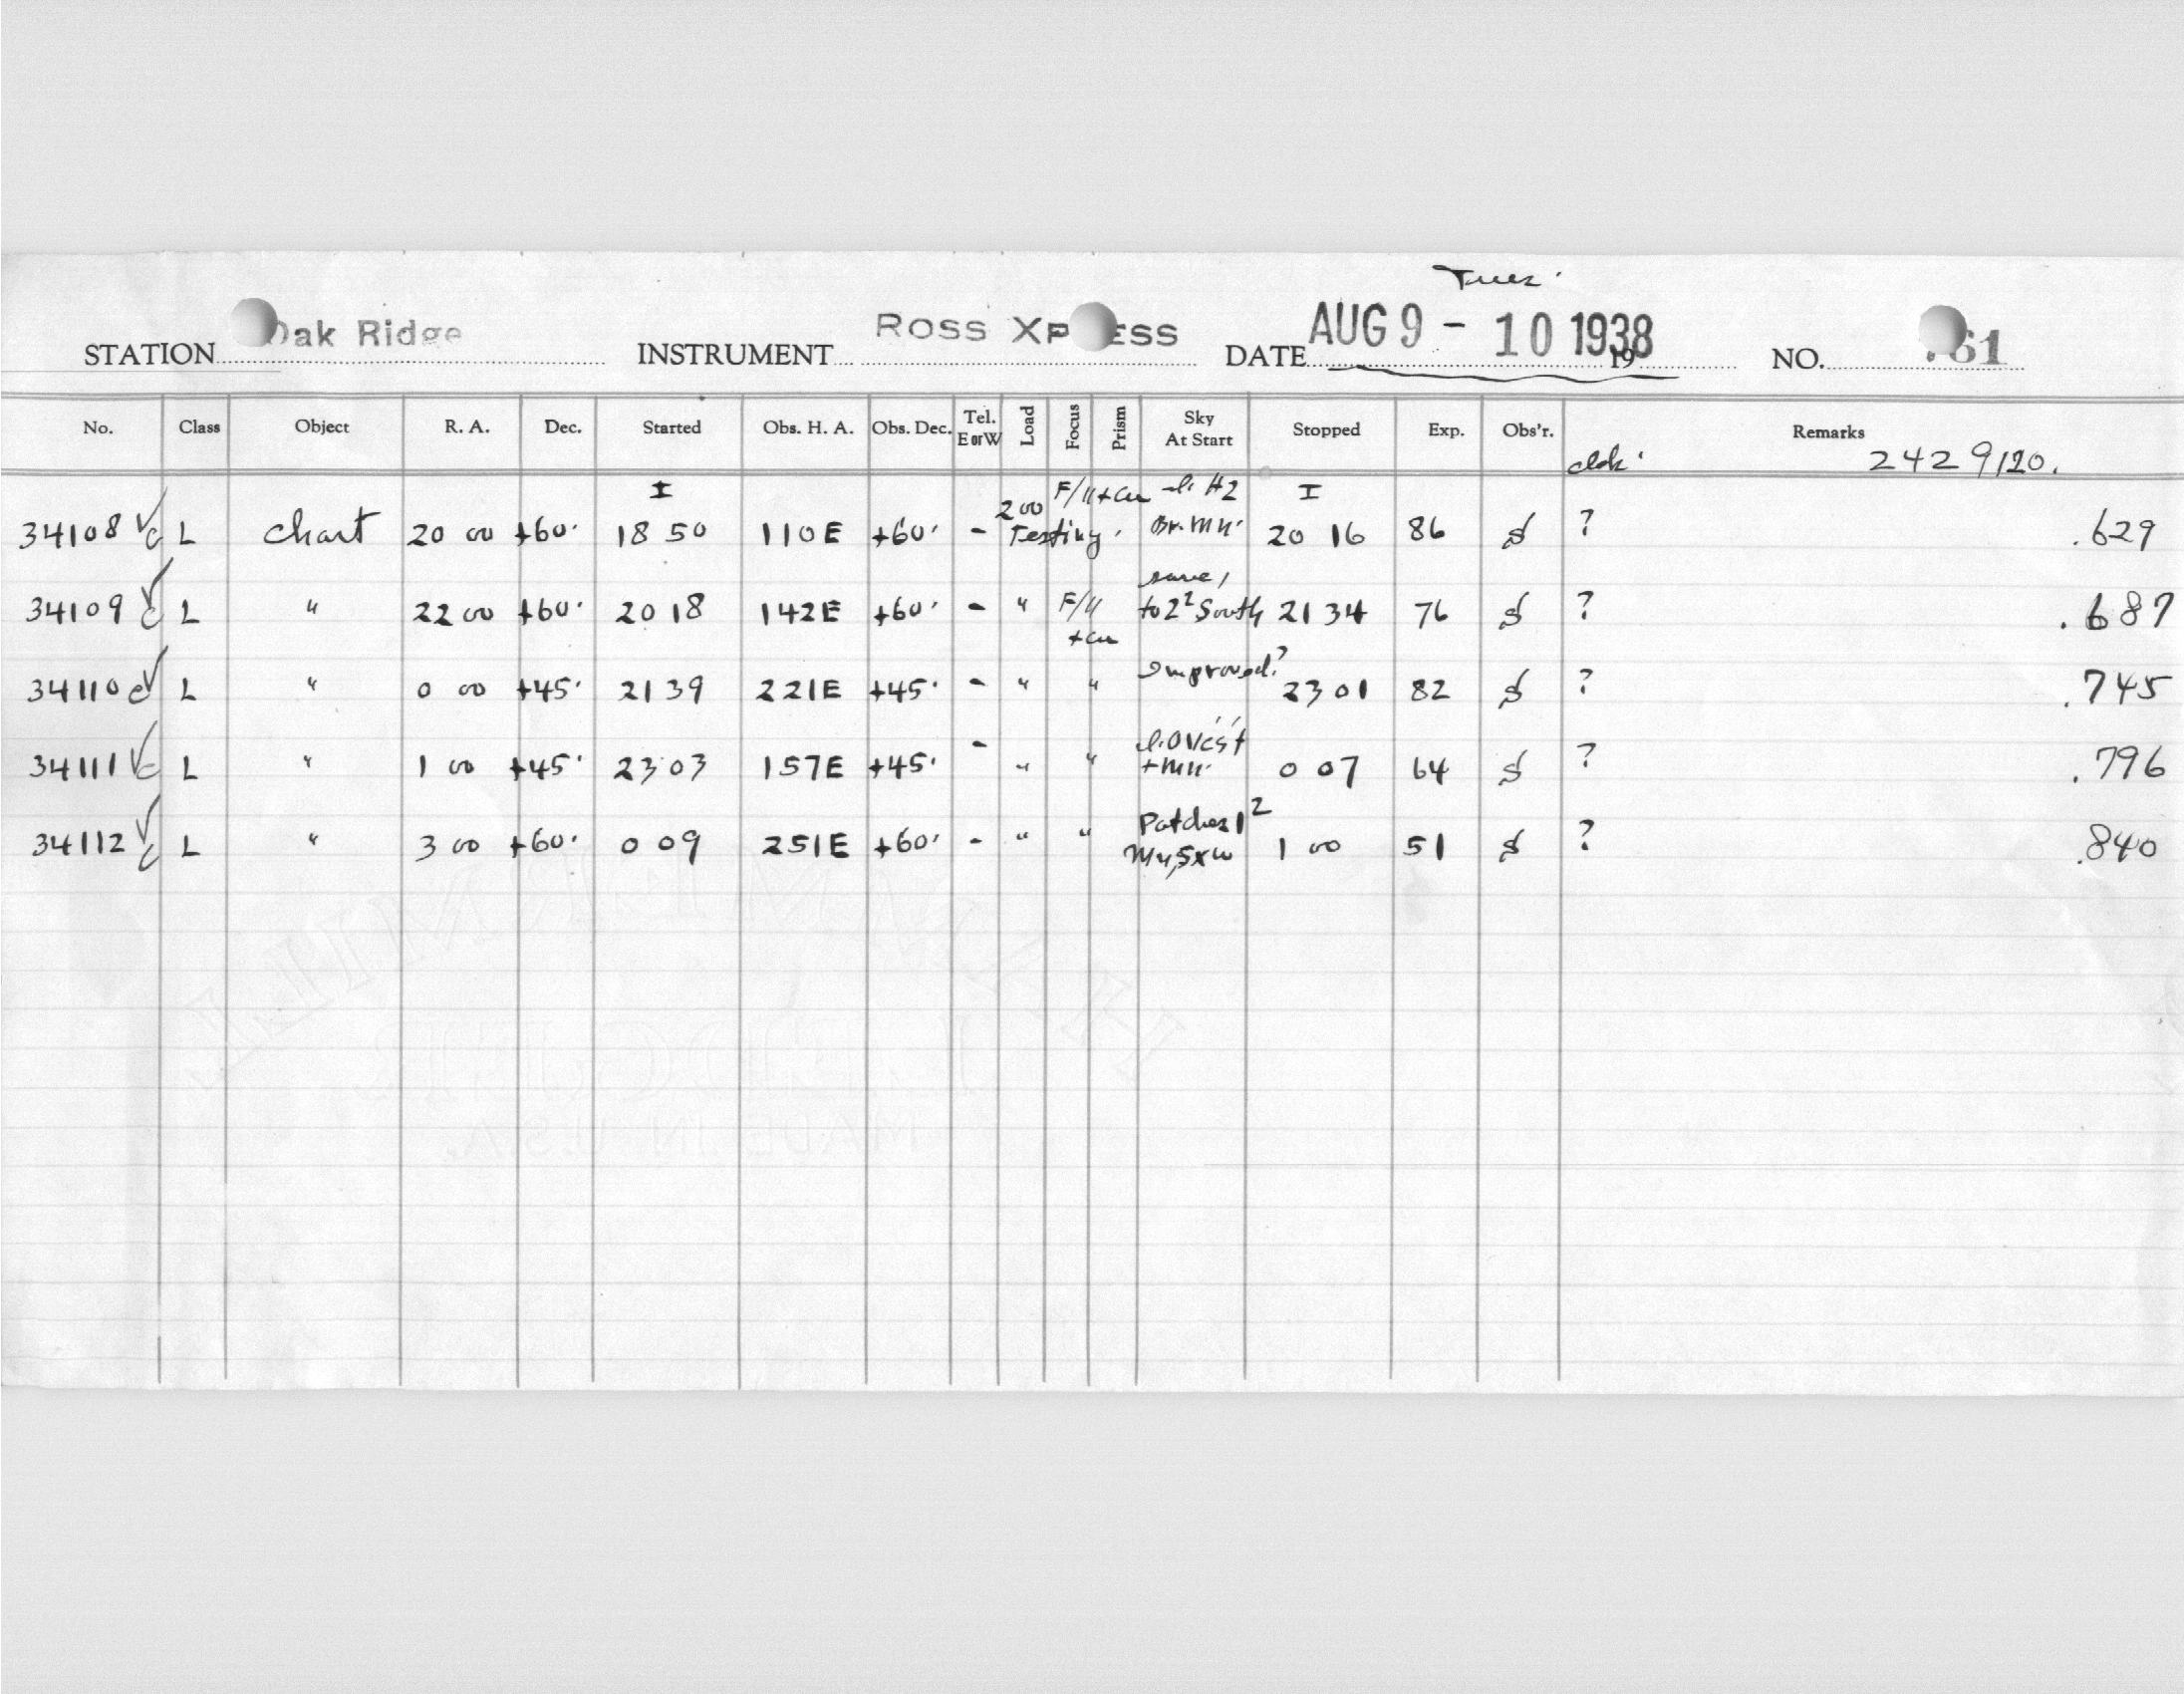 Tues.
STATION Oak Ridge INSTRUMENT ROSS XP ESS DATE AUG 9 - 10 1938 19 NO. 61
No. Class Object R. A. Dec. Started Obs. H. A. Obs. Dec. Tel. E or W Load Focus Prism Sky At Start Stopped Exp. Obs'r. Remarks
2429120.
I F/11+cu #2 I
34108 L Chart 20 00 +60° 18 50 110E +60° - 200 Testing. Br. Mn. 20 16 86 ? .629
same,
34109 L " 22 00 +60° 20 18 142E +60° - " F/11 +cu to 2² South 21 34 76 ? .687
34110 L " 0 00 +45° 21 39 221E +45° - " " Improved? 23 01 82 ? .745
34111 L " 1 00 +45° 23 03 157E +45° - " " +Mn. 0 07 64 ? .796
34112 L " 3 00 +60° 0 09 251E +60° - " " Patches 1² Mn, SxW 1 00 51 ? .840
MADE IN U.S.A.